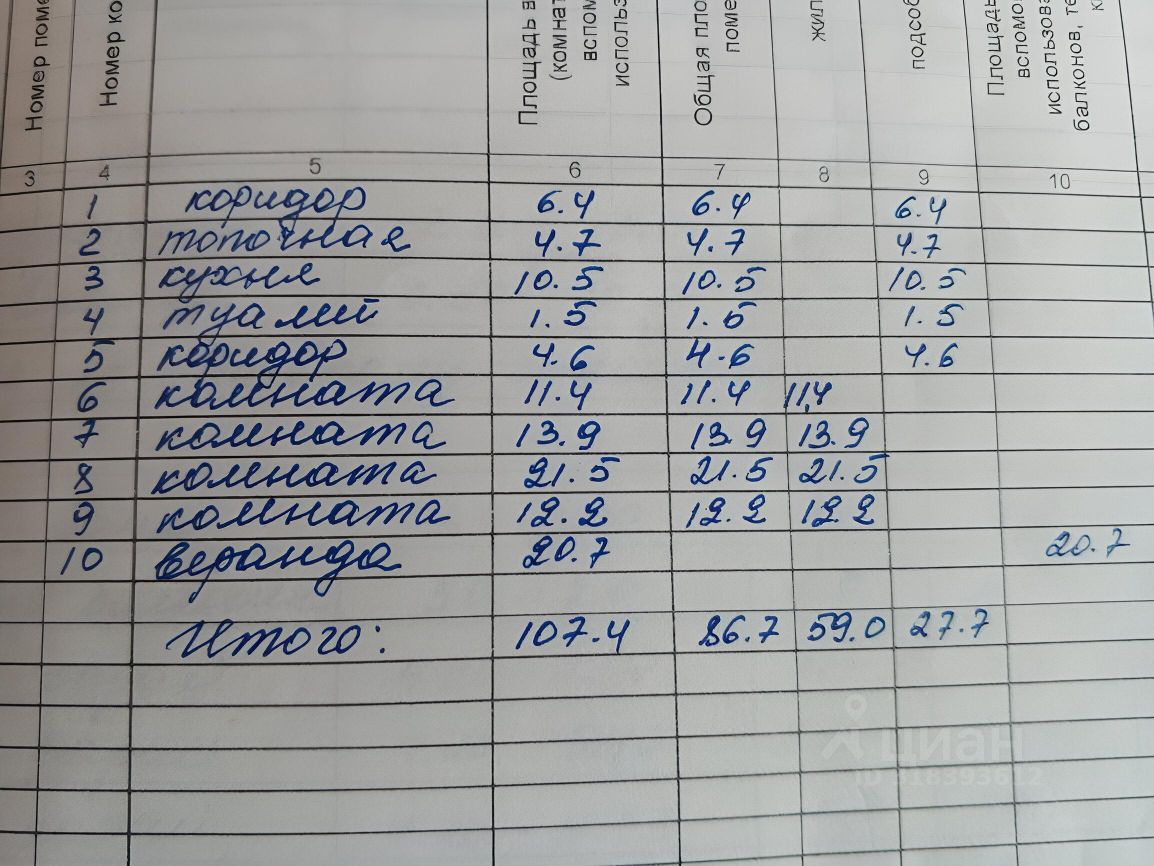 Номер поме
Номер ко
Площадь в
(комнат
вспом
использ
Общая пло
поме
жил
подсоб
Площадь
вспомо
использова
балконов, те
к
3 4 5 6 7 8 9 10
1 коридор 6.4 6.4 6.4
2 топочная 4.7 4.7 4.7
3 кухня 10.5 10.5 10.5
4 туалет 1.5 1.5 1.5
5 коридор 4.6 4.6 4.6
6 комната 11.4 11.4 11,4
7 комната 13.9 13.9 13.9
8 комната 21.5 21.5 21.5
9 комната 12.2 12.2 12.2
10 веранда 20.7 20.7
Итого: 107.4 86.7 59.0 27.7
циан
ID 318393612